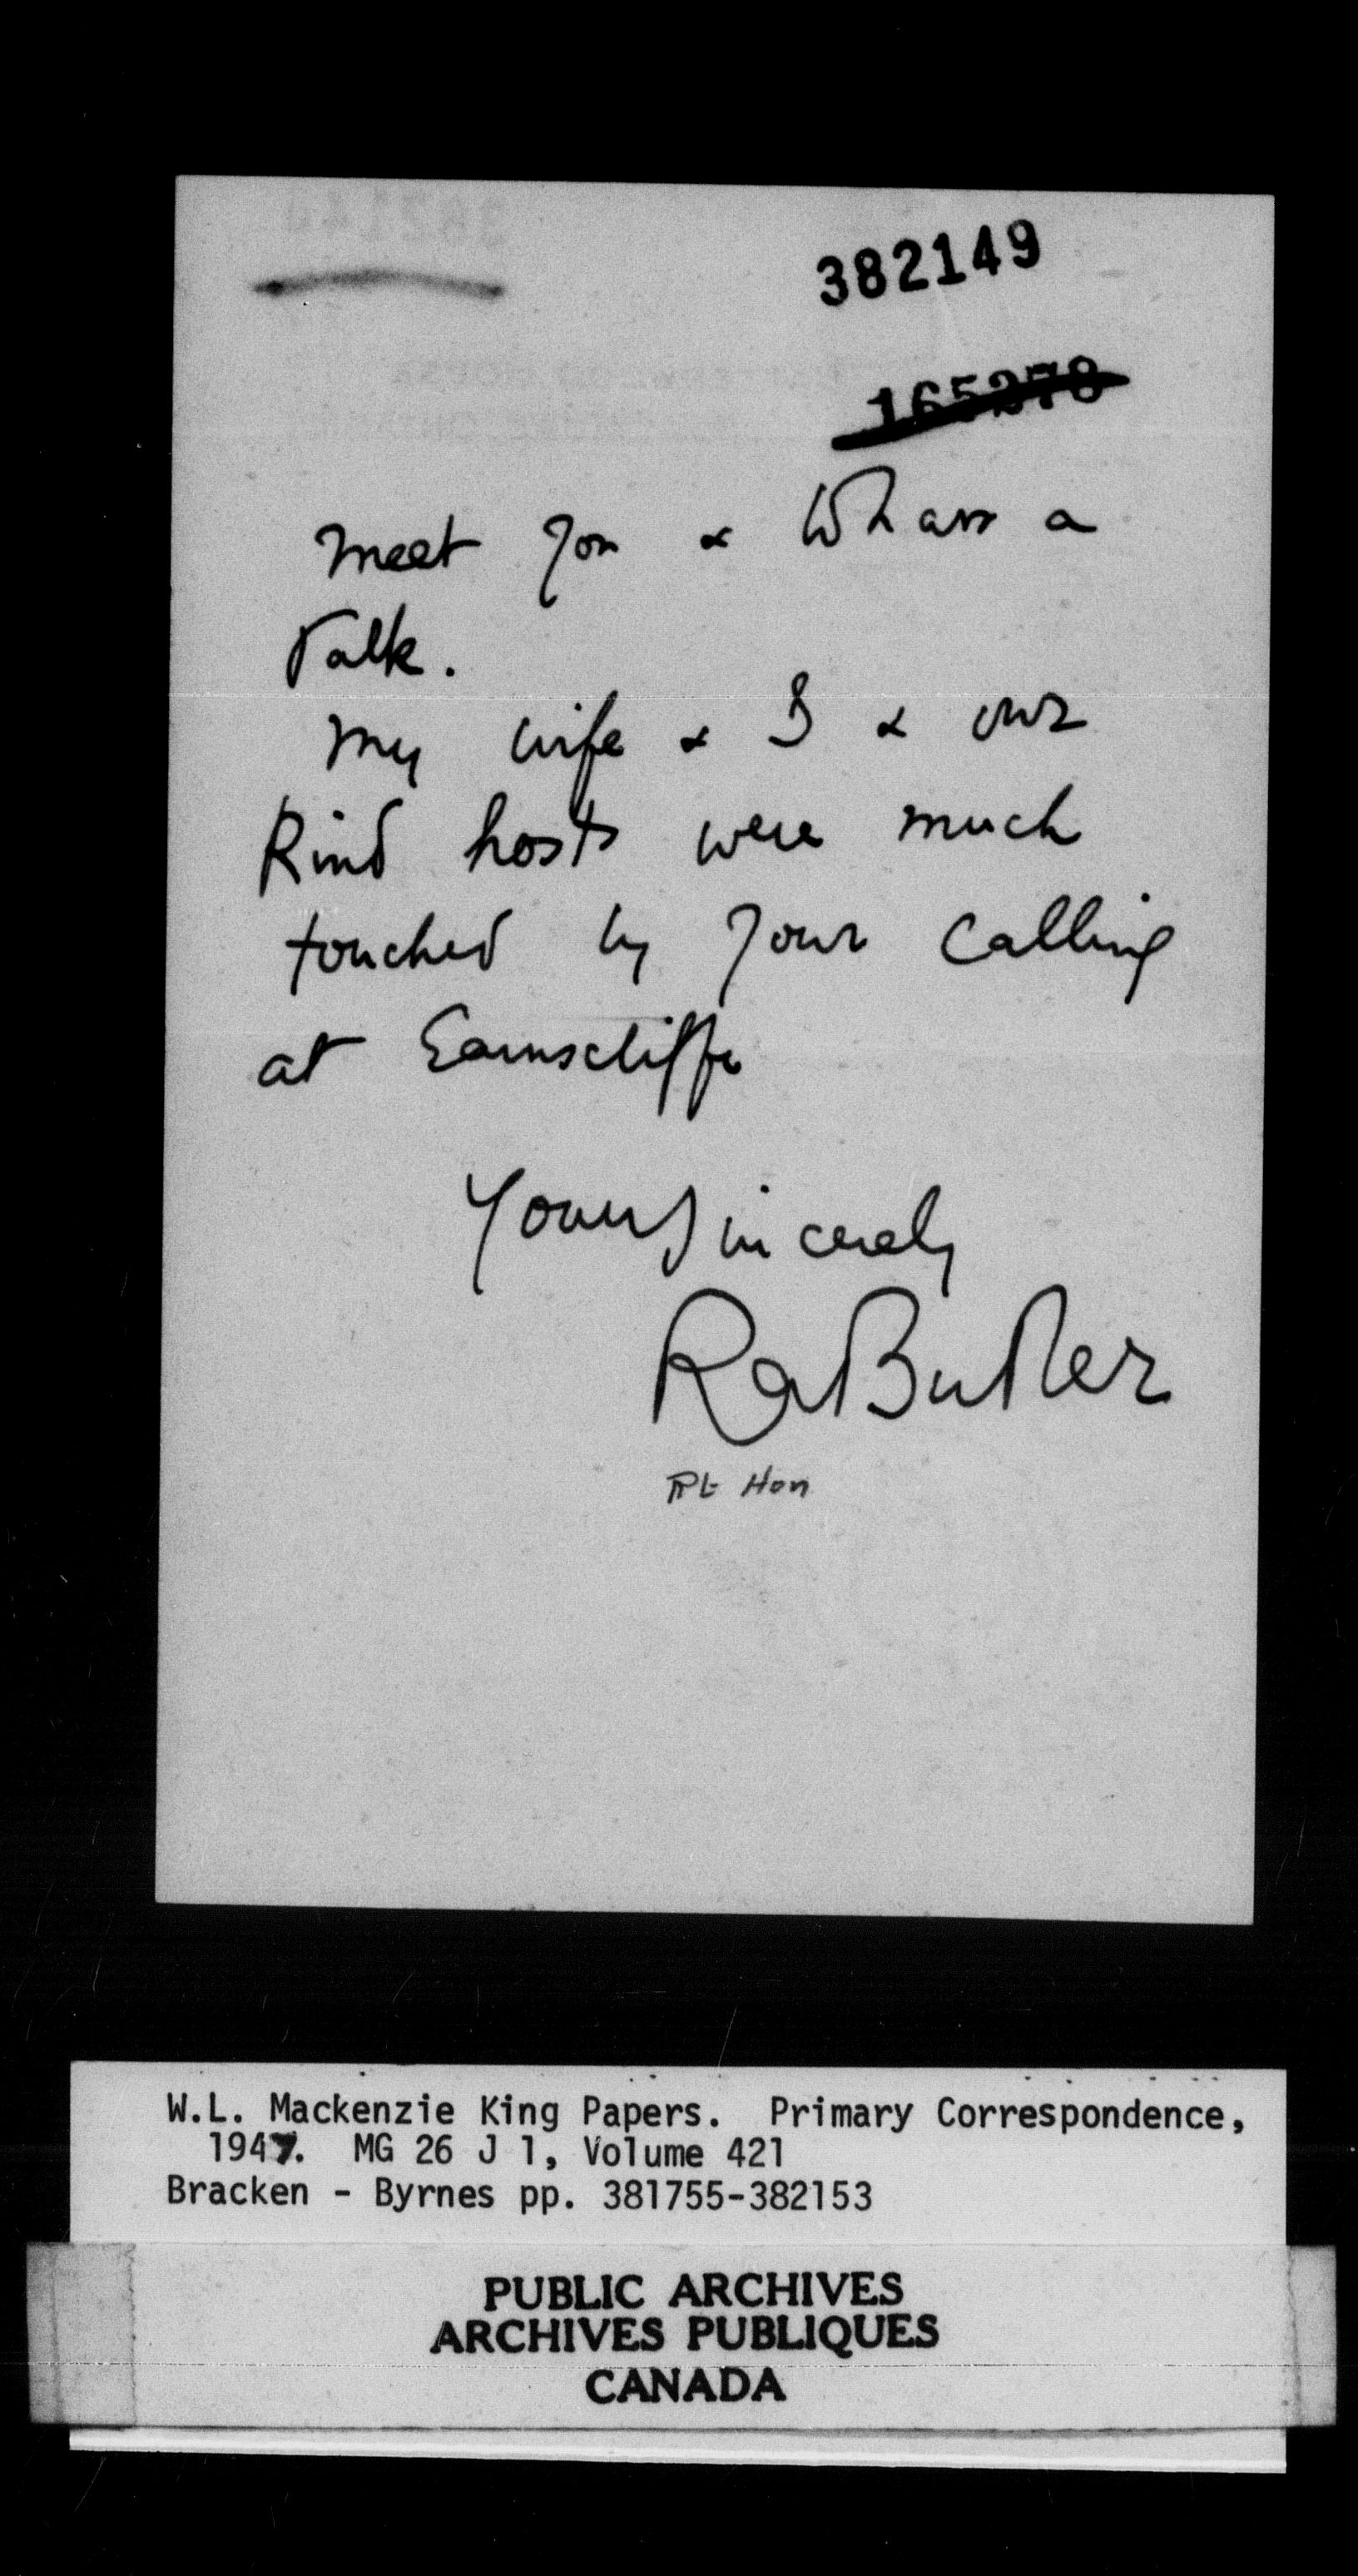 382149
165278
meet you & to have a
talk.
My wife & I & our
kind hosts were much
touched by your calling
at Earnscliffe
Yours sincerely
Ra Butler
Rt Hon
W.L. Mackenzie King Papers. Primary Correspondence,
1947. MG 26 J 1, Volume 421
Bracken - Byrnes pp. 381755-382153
PUBLIC ARCHIVES
ARCHIVES PUBLIQUES
CANADA